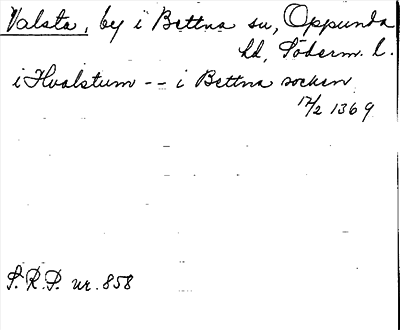 Valsta, by i Bettna sn, Oppunda
hd, Söderm. l.
i Hvalstum -- i Bettna socken
17/2 1369
S.R.P. nr. 858